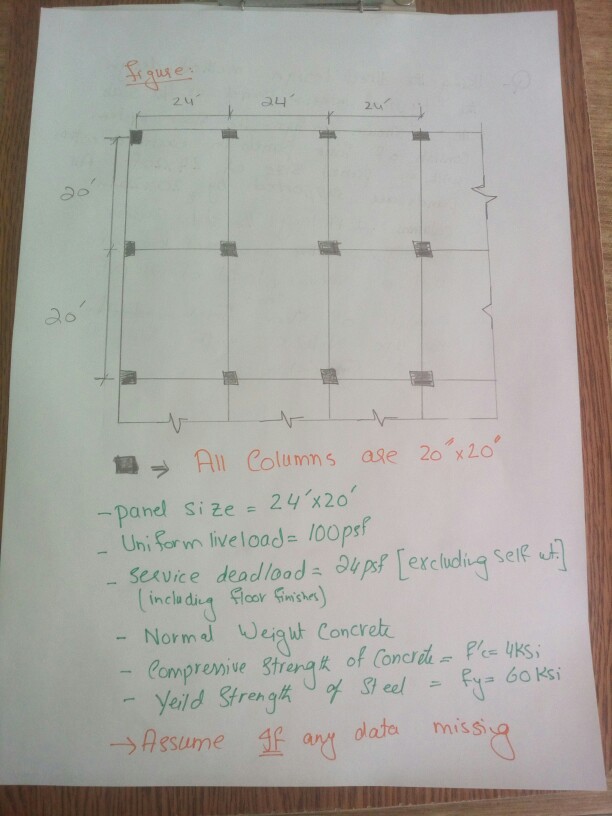 Figure:
24' 24' 24'
20'
20'
→ All Columns are 20"x20"
- panel size = 24'x20'
- Uniform liveload = 100psf
- service deadload = 24psf [excluding self wt.]
(including floor finishes)
- Normal Weight Concrete
- Compressive Strength of Concrete = f'c = 4Ksi
- Yeild Strength of Steel = fy = 60 Ksi
→ Assume If any data missing